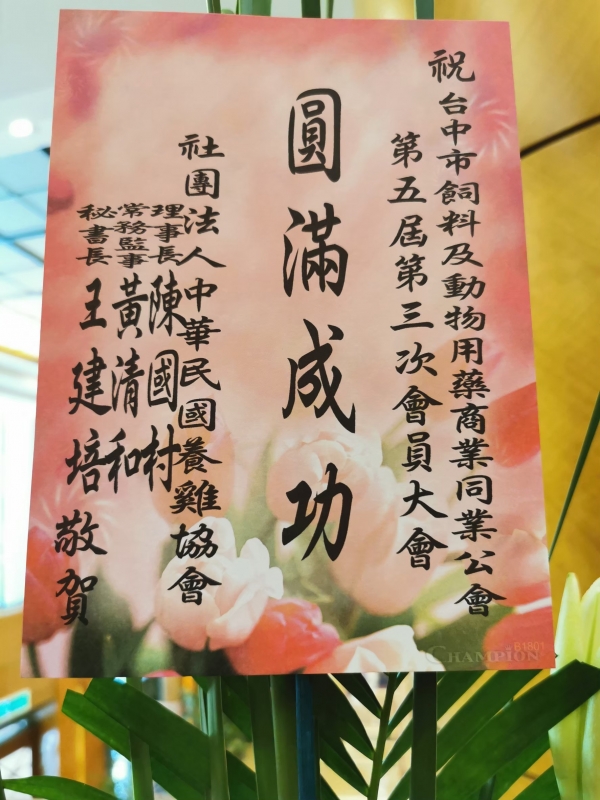 祝台中市飼料及動物用藥商業同業公會
第五屆第三次會員大會
圓滿成功
社團法人中華民國養雞協會
理事長陳國村
常務監事黃清和
秘書長王建培
敬賀
CHAMPION
B1801